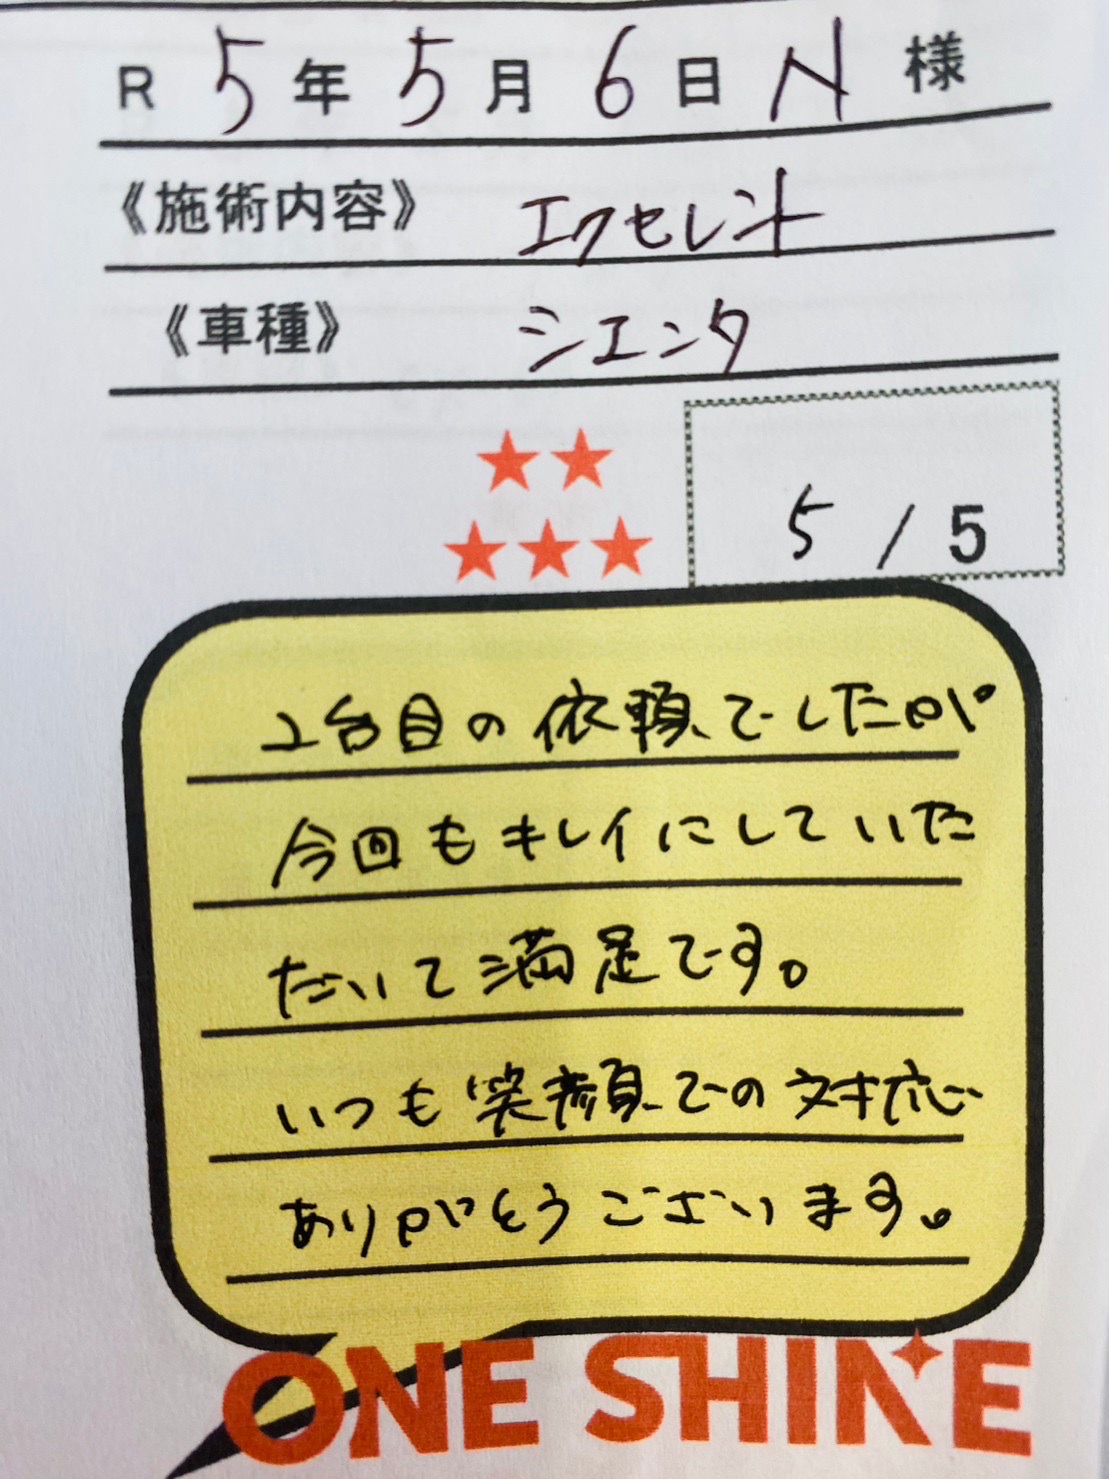 R 5年 5月 6日 N 様
《施術内容》 エクセレント
《車種》 シエンタ
5 / 5
2台目の依頼でしたが
今回もキレイにしていた
だいて満足です。
いつも笑顔での対応
ありがとうございます。
ONE SHINE